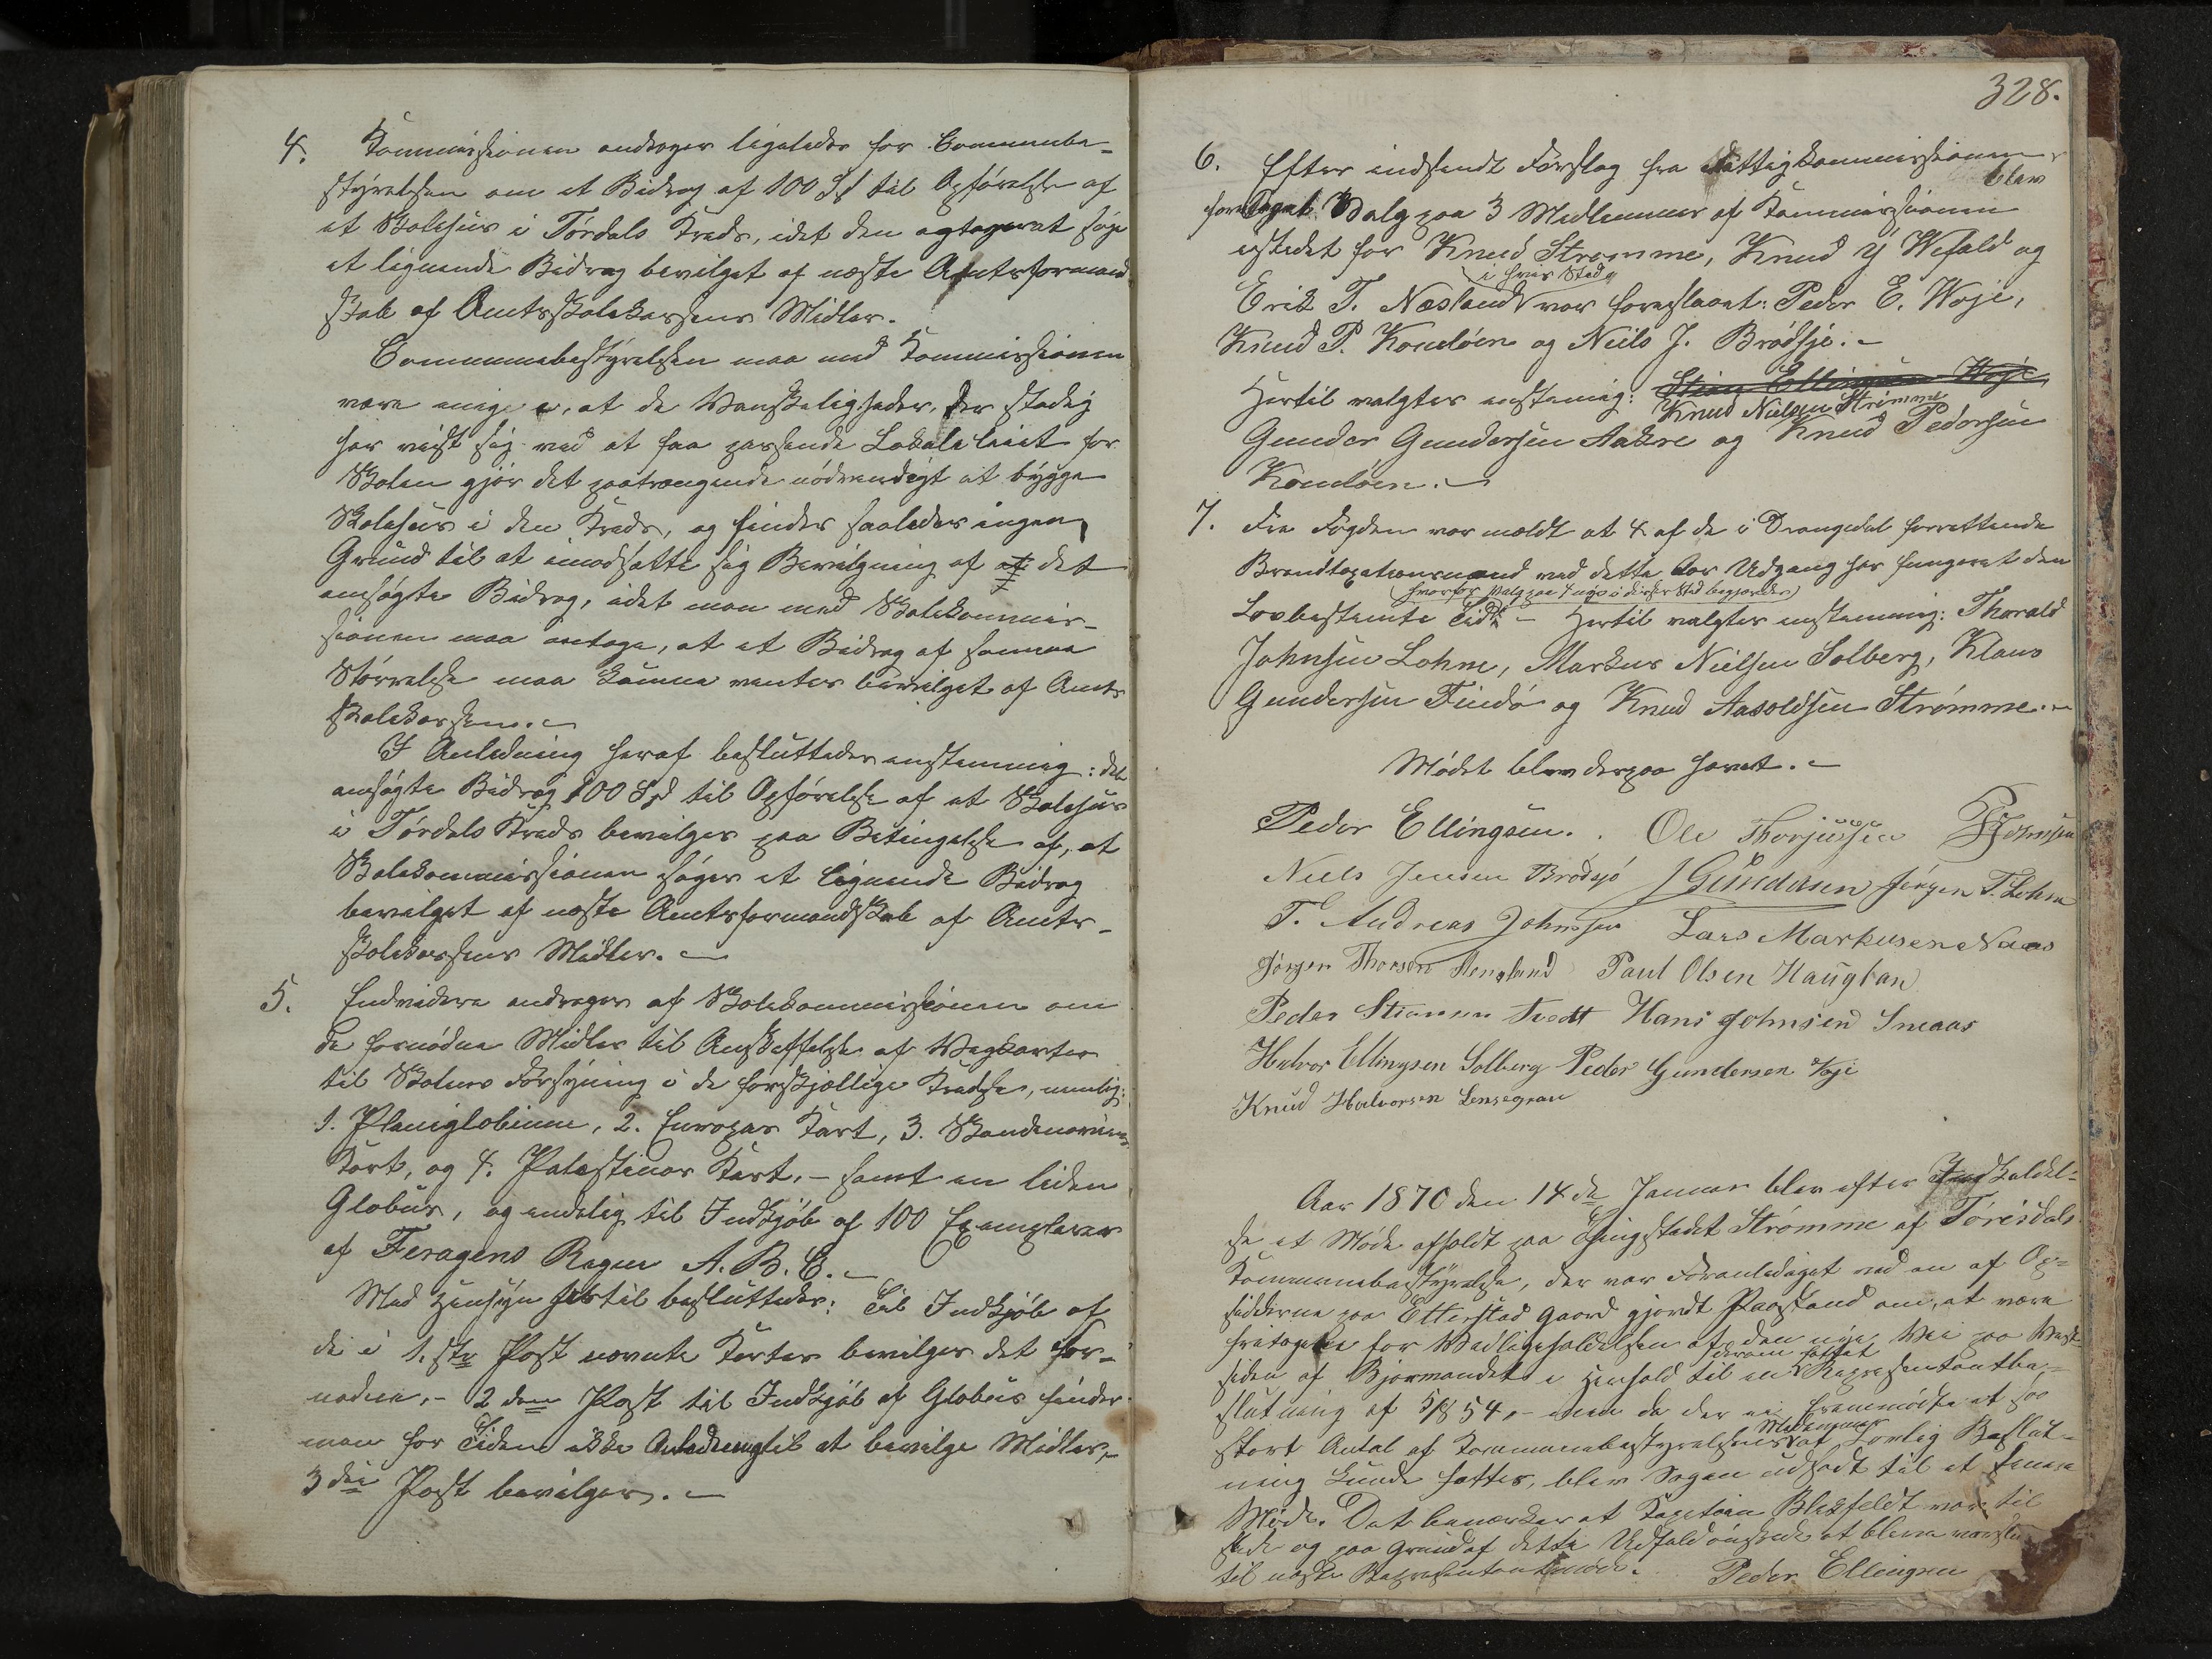 4. Kommissionen andrager ligeledes for Communbe-
styrelsen om et Bidrag af 100 Spd til Opførelse af
et Skolehuus i Tørdals Kreds, idet den agter at søge
et lignende Bidrag bevilget af næste Amtsformand-
skab af Amtsskolekassens Midler.
Communebestyrelsen maa med Kommissionen
være enige i, at de Vanskeligheder, der stadig
har viist sig ved at faa passende Lokale leiet for
Skolen gjør det paatrængende nødvendigt at bygge
Skolehus i den Kreds, og finder saaledes ingen
Grund til at imodsætte sig Bevilgning af det
ansøgte Bidrag, idet man med Skolekommis-
sionen maa antage, at et Bidrag af samme
Størrelse maa kunne ventes bevilget af Amts
skolekassen.
I Anledning heraf besluttedes enstemmig: det
ansøgte Bidrag 100 Spd til Opførelse af et Skolehus
i Tørdals Kreds bevilges paa Betingelse af, at
Skolekommissionen søger et lignende Bidrag
bevilget af næste Amtsformandskab af Amts-
skolekassens Midler.
5. Endvidere andrages af Skolekommissionen om
de fornødne Midler til Anskaffelse af Vægkarter
til Skolens Forsyning i de forskjællige Kredse, nemlig:
1. Planiglobium, 2. Europas Kart, 3. Skandinaviens
Kart, og 4. Palæstinas Kart, - samt en liden
Globus, og endelig til Indkjøb af 100 Exemplarer
af Feragens Regne A.B.C.
Med Hensyn hertil besluttedes: Til Indkjøb af
de i 1.ste Post nævnte Karter bevilges det For-
nødne, - 2den Post til Indkjøb af Globus finder
man for Tiden ikke Anledning til at bevilge Midler,
3die Post bevilges.
328.
6. Efter indsendt Forslag fra Fattigkommissionen
blev
foretaget Valg paa 3 Medlemmer af Kommissionen
istedet for Knud Strømme, Knud Y Wefald og
i hvis Sted
Erik T. Næsland var foreslaaet: Peder E. Woje,
Knud P. Koudøen og Niels J. Brødsjø.
Hertil valgtes enstemmig: Stian Ellingsen Woje,
Knud Nielsen Strømme
Gunder Gundersen Aakre og Knud Pedersen
Koudøen.
7. Fra Fogden var mældt at 4 af de i Drangedal forrettende
Brandtaxationsmænd ved dette Aars Udgang har fungeret den
hvorfor Valg paa 4 nye i disses Sted begjæredes
Lovbestemte Tid - Hertil valgtes enstemmig: Tharald
Johnsen Lohne, Markus Nielsen Solberg, Klaus
Gundersen Findø og Knud Aasoldsen Strømme.
Mødet blev derpaa hævet.
Peder Ellingsen. Ole Thorjussen Johnsen
Niels Jensen Brødsjø Gundersen Jørgen T. Lohne
T. Andreas Johnsen Lars Markusen Naas
Jørgen Thorsen Henseland Paul Olsen Haugban
Peder Stiansen Tvedt Hans Johnsen Smaas
Halvor Ellingsen Solberg Peder Gundersen Voje
Knud Halvorsen Lensegrav
Aar 1870 den 14de Januar blev efter Indkaldel-
se et Møde afholdt paa Thingstedet Strømme af Tørisdals
Kommunebestyrelse, der var Foranlediget ved en af Op-
sidderne paa Etterstad Gaard gjordt Paastand om, at være
fritagne for Vedligeholdelsen af den nye Vei paa Vest-
derom fattet
siden af Bjorvandet i Henhold til en Repræsentantbe-
slutning af 5/8 54, - men da der ei fremmødte et saa
Medlemmer
stort Antal af Kommunebestyrelsens at Lovlig Beslut-
ning kunde fattes, blev Sagen udsadt til et senere
Møde. Det bemærkes at Kaptein Blekfeldt var til
stede og paa Grund af dette Udfald ønskede at blive varslet
til næste Repræsentantmøde. Peder Ellingsen